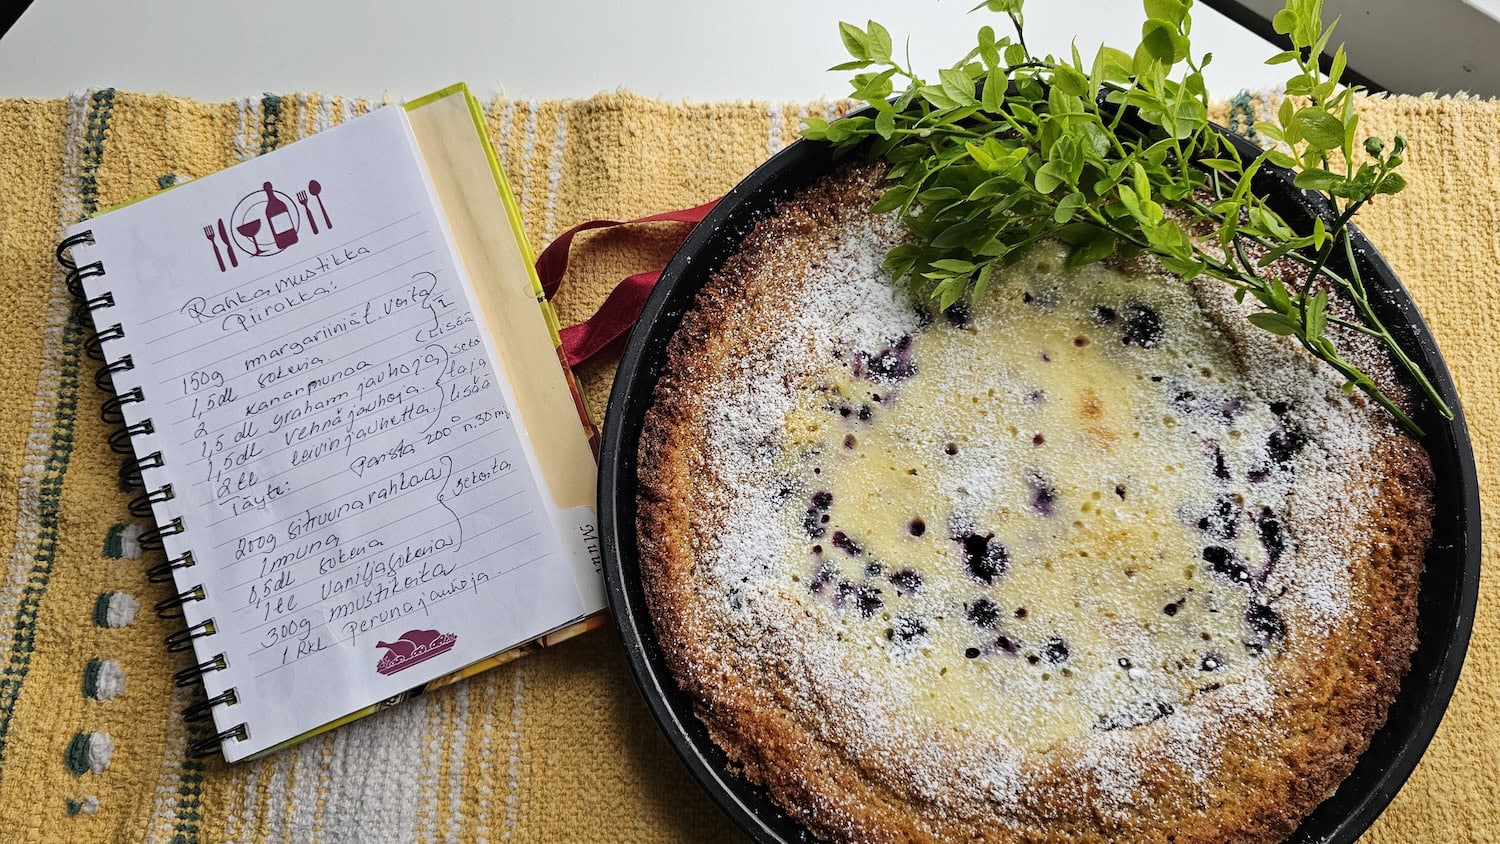 Rahkamustikka
Piirakka:
150g margariiniä t. voita
1,5dl sokeria.
2 kananmunaa (Lisää
1,5 dl graham jauhoja Seko
1,5dl vehnäjauhoja. taja
2tl leivinjauhetta lisää
Täyte: Paista 200° n.30 min
200g sitruunarahkaa
1 muna Sekoita
0,5dl sokeria
1tl vaniljasokeria
300g mustikoita
1 Rkl perunajauhoja.
Muu